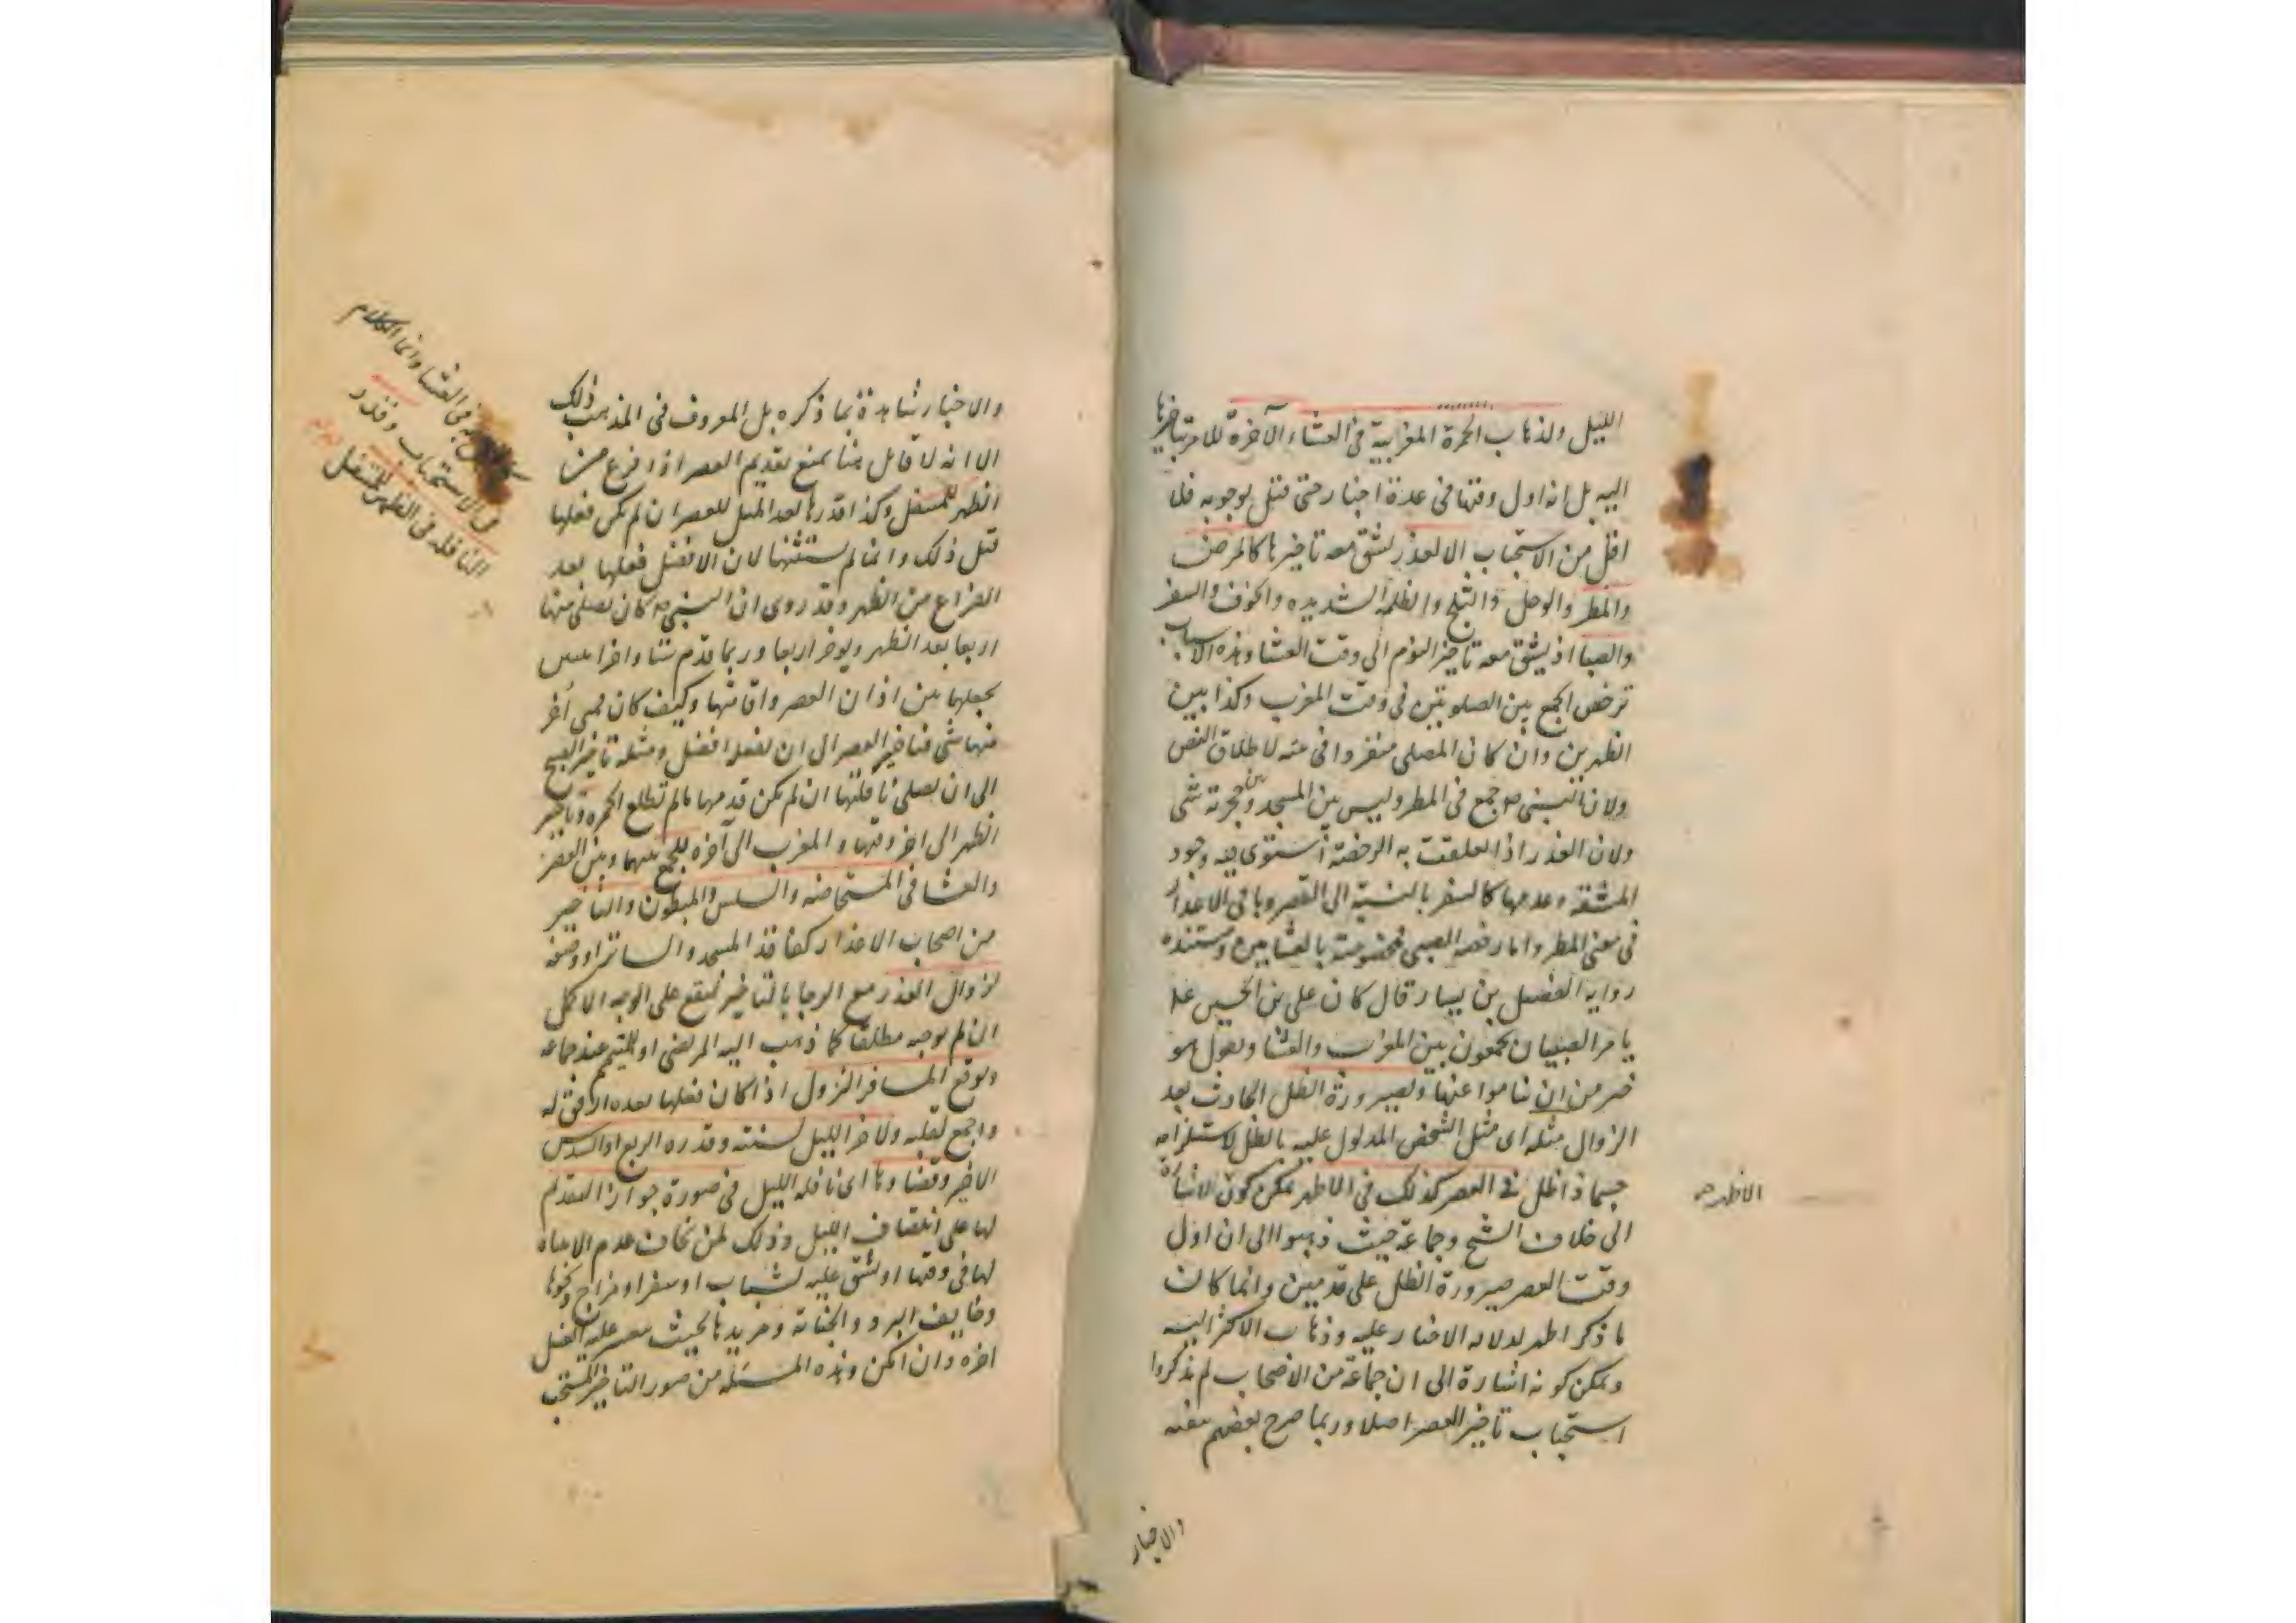 الليل ولذهاب الحمرة المغربية في العشاء الآخرة للامر بتاخيرها
اليه بل انه اول وقتها في عدة اخبار حتى قيل بوجوبه فلا
اقل من الاستحباب الا لعذر يشق معه تاخيرها كالمرض
والمطر والوحل والثلج والظلمة الشديده والخوف والسفر
والصبا اذ يشق معه تاخير النوم الى وقت العشا وهذه الاسباب
ترخص الجمع بين الصلوتين في وقت المغرب وكذا بين
الظهرين وان كان المصلى منفردا في بيته لاطلاق النص
ولان النبي ص جمع في المطر وليس بين المسجد وبين حجرته شي
ولان العذر اذا تعلقت به الرخصة استوى فيه وجود
المشقة وعدمها كالسفر بالنسبة الى القصر وباقي الاعذار
في معنى المطر واما رخصه الصبى فمخصوصة بالعشايين ومستنده
رواية الفضيل بن يسار قال كان على بن الحسين ع
يامر الصبيان يجمعون بين المغرب والعشا ويقول هو
خير من ان يناموا عنها ولصيرورة الظل الحادث بعد
الزوال مثله اى مثل الشخص المدلول عليه بالظل لاستلزامه
جسما ذا ظل في العصر كذلك في الاظهر يمكن كون الاشارة
الاظهر ص
الى خلاف الشيخ وجماعة حيث ذهبوا الى ان اول
وقت العصر صيرورة الظل على قدمين وانما كان
ما ذكر اظهر لدلاله الاخبار عليه وذهاب الاكثر اليه
ويمكن كونه اشارة الى ان جماعة من الاصحاب لم يذكروا
استحباب تاخير العصر اصلا وربما صرح بعضهم بنفيه
والاخبار
والاخبار شاهدة بما ذكره بل المعروف في المذهب ذلك
الا انه لا قايل منا بمنع تقديم العصر اذا فرغ من
الظهر للمتنفل وكذا قدرها بعد المثل للعصر ان لم يكن فعلها
قبل ذلك وانما لم يستثنها لان الافضل فعلها بعد
الفراغ من الظهر وقد روى ان النبي ص كان يصلى منها
اربعا بعد الظهر ويوخر اربعا وربما قدم ستا واخر اثنتين
يجعلهما بين اذان العصر واقامتها وكيف كان فمتى أخر
منها شى فتاخير العصر الى ان يفعله افضل ومثله تاخير الصبح
الى ان يصلى نافلتها ان لم يكن قدمها مالم تطلع الحمره وتاخير
الظهر الى اخر وقتها والمغرب الى آخره للجمع بينهما وبين العصر
والعشا في المستحاضه والسلس والمبطون والتاخير
من اصحاب الاعذار كفاقد المسجد والساتر او وصفه
لزوال العذر مع الرجا بالتاخير ليقع على الوجه الاكمل
ان لم نوجبه مطلقا كما ذهب اليه المرتضى او للمتيمم عند جماعه
وتوقع المسافر النزول اذا كان فعلها بعده ارفق له
واجمع لقلبه ولاخر الليل لسنته وقدره الربع او السدس
الاخير وقضاوها اى نافله الليل في صورة جواز التقديم
لها على انتصاف الليل وذلك لمن يخاف عدم الانتباه
لها في وقتها او يشق عليه لشباب او سفر او مزاج ونحوها
وخايف البرد والجنابة ومريدها بحيث يعسر عليه الغسل
اخره وان امكن وهذه المسئله من صور التاخير المستحب
في العشا وانما الكلام
في الاستحباب وقدر
النافله في الظهر للمتنفل